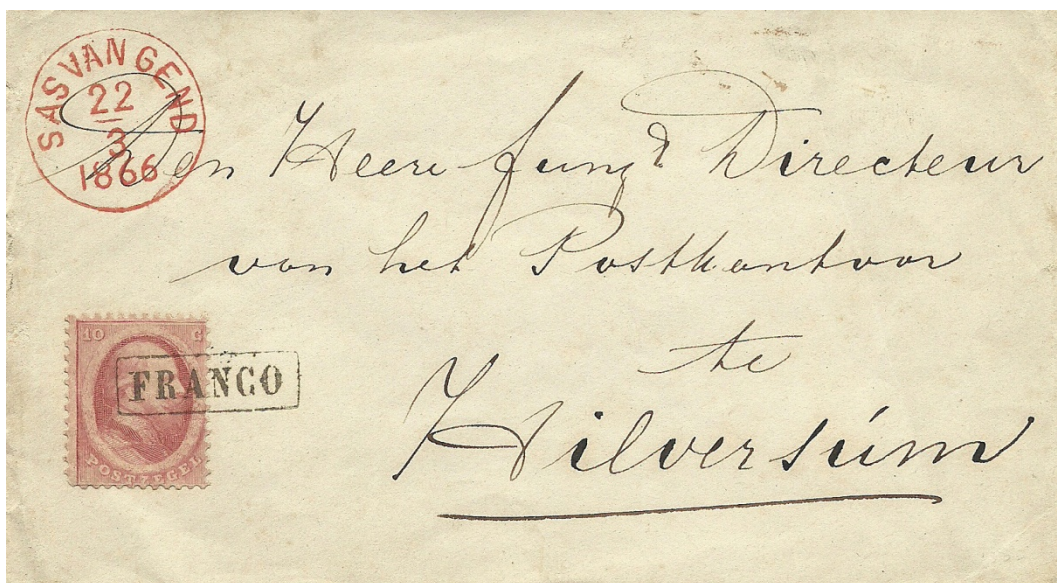 SAS VAN GEND
22
3
1866
Den Heere fung^d Directeur
van het Postkantoor
te
Hilversúm
10 C
FRANCO
POSTZEGEL